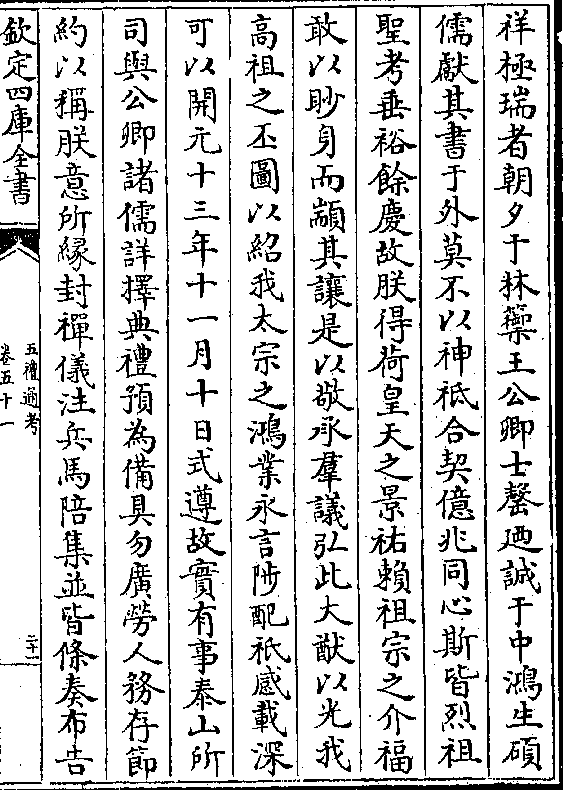 祥極瑞者朝夕于林籔王公卿士罄廼誠于中鴻生碩
儒獻其書于外莫不以神祗合契億兆同心斯皆烈祖
聖考垂裕餘慶故朕得荷皇天之景祐賴祖宗之介福
敢以眇身而顓其讓是以敬承羣議弘此大猷以光我
高祖之丕圖以紹我太宗之鴻業永言陟配祗感載深
可以開元十三年十一月十日式遵故實有事泰山所
司與公卿諸儒詳擇典禮預為備具勿廣勞人務存節
約以稱朕意所緣封禪儀注兵馬陪集並皆條奏布告
欽定四庫全書
五禮通考
卷五十一
二十一